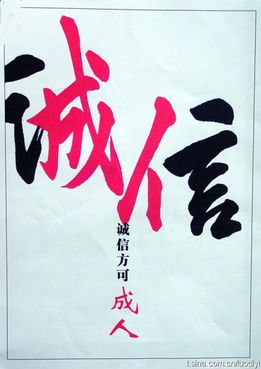 诚信
诚信方可
成人
t.sina.com.cn/luodiyi